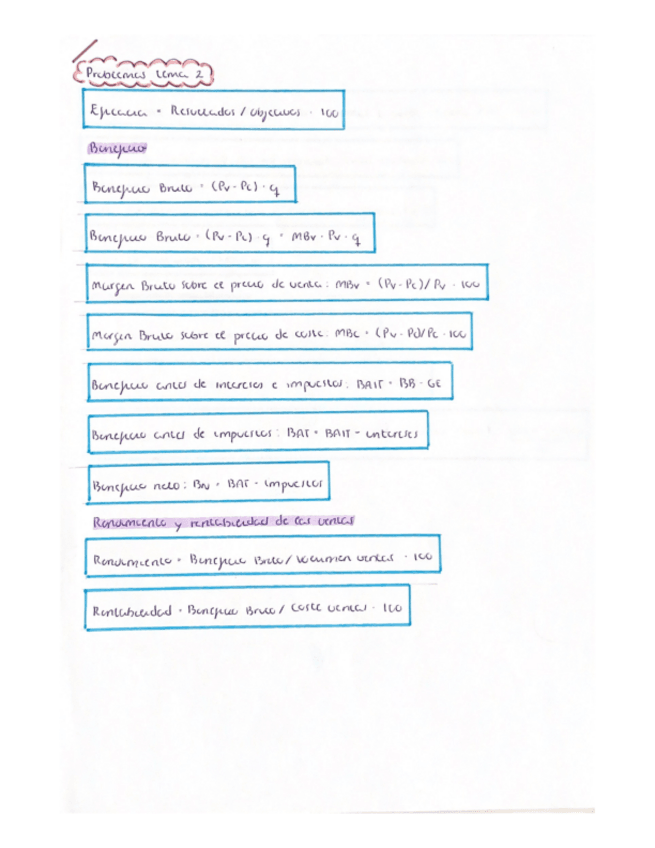 Problemas tema 2
Eficacia = Resultados / objetivos · 100
Beneficio
Beneficio Bruto = (Pv - Pc) · q
Beneficio Bruto = (Pv - Pc) · q = MBv · Pv · q
Margen Bruto sobre el precio de venta: MBv = (Pv - Pc) / Pv · 100
Margen Bruto sobre el precio de coste: MBc = (Pv - Pc)/Pc · 100
Beneficio antes de intereses e impuestos: BAIT = BB - GE
Beneficio antes de impuestos: BAT = BAIT - intereses
Beneficio neto: BN = BAT - impuestos
Rendimiento y rentabilidad de las ventas
Rendimiento = Beneficio Bruto / volumen ventas · 100
Rentabilidad = Beneficio Bruto / coste ventas · 100